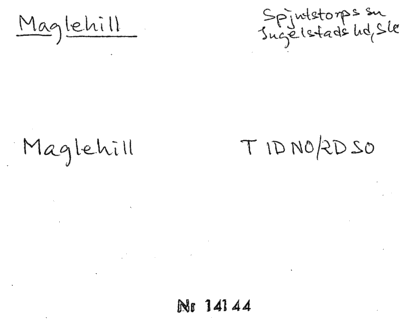 Maglehill
Spjutstorps sn
Ingelstads hd, Sk
Maglehill
T 1D NO/2D SO
Nr 14144